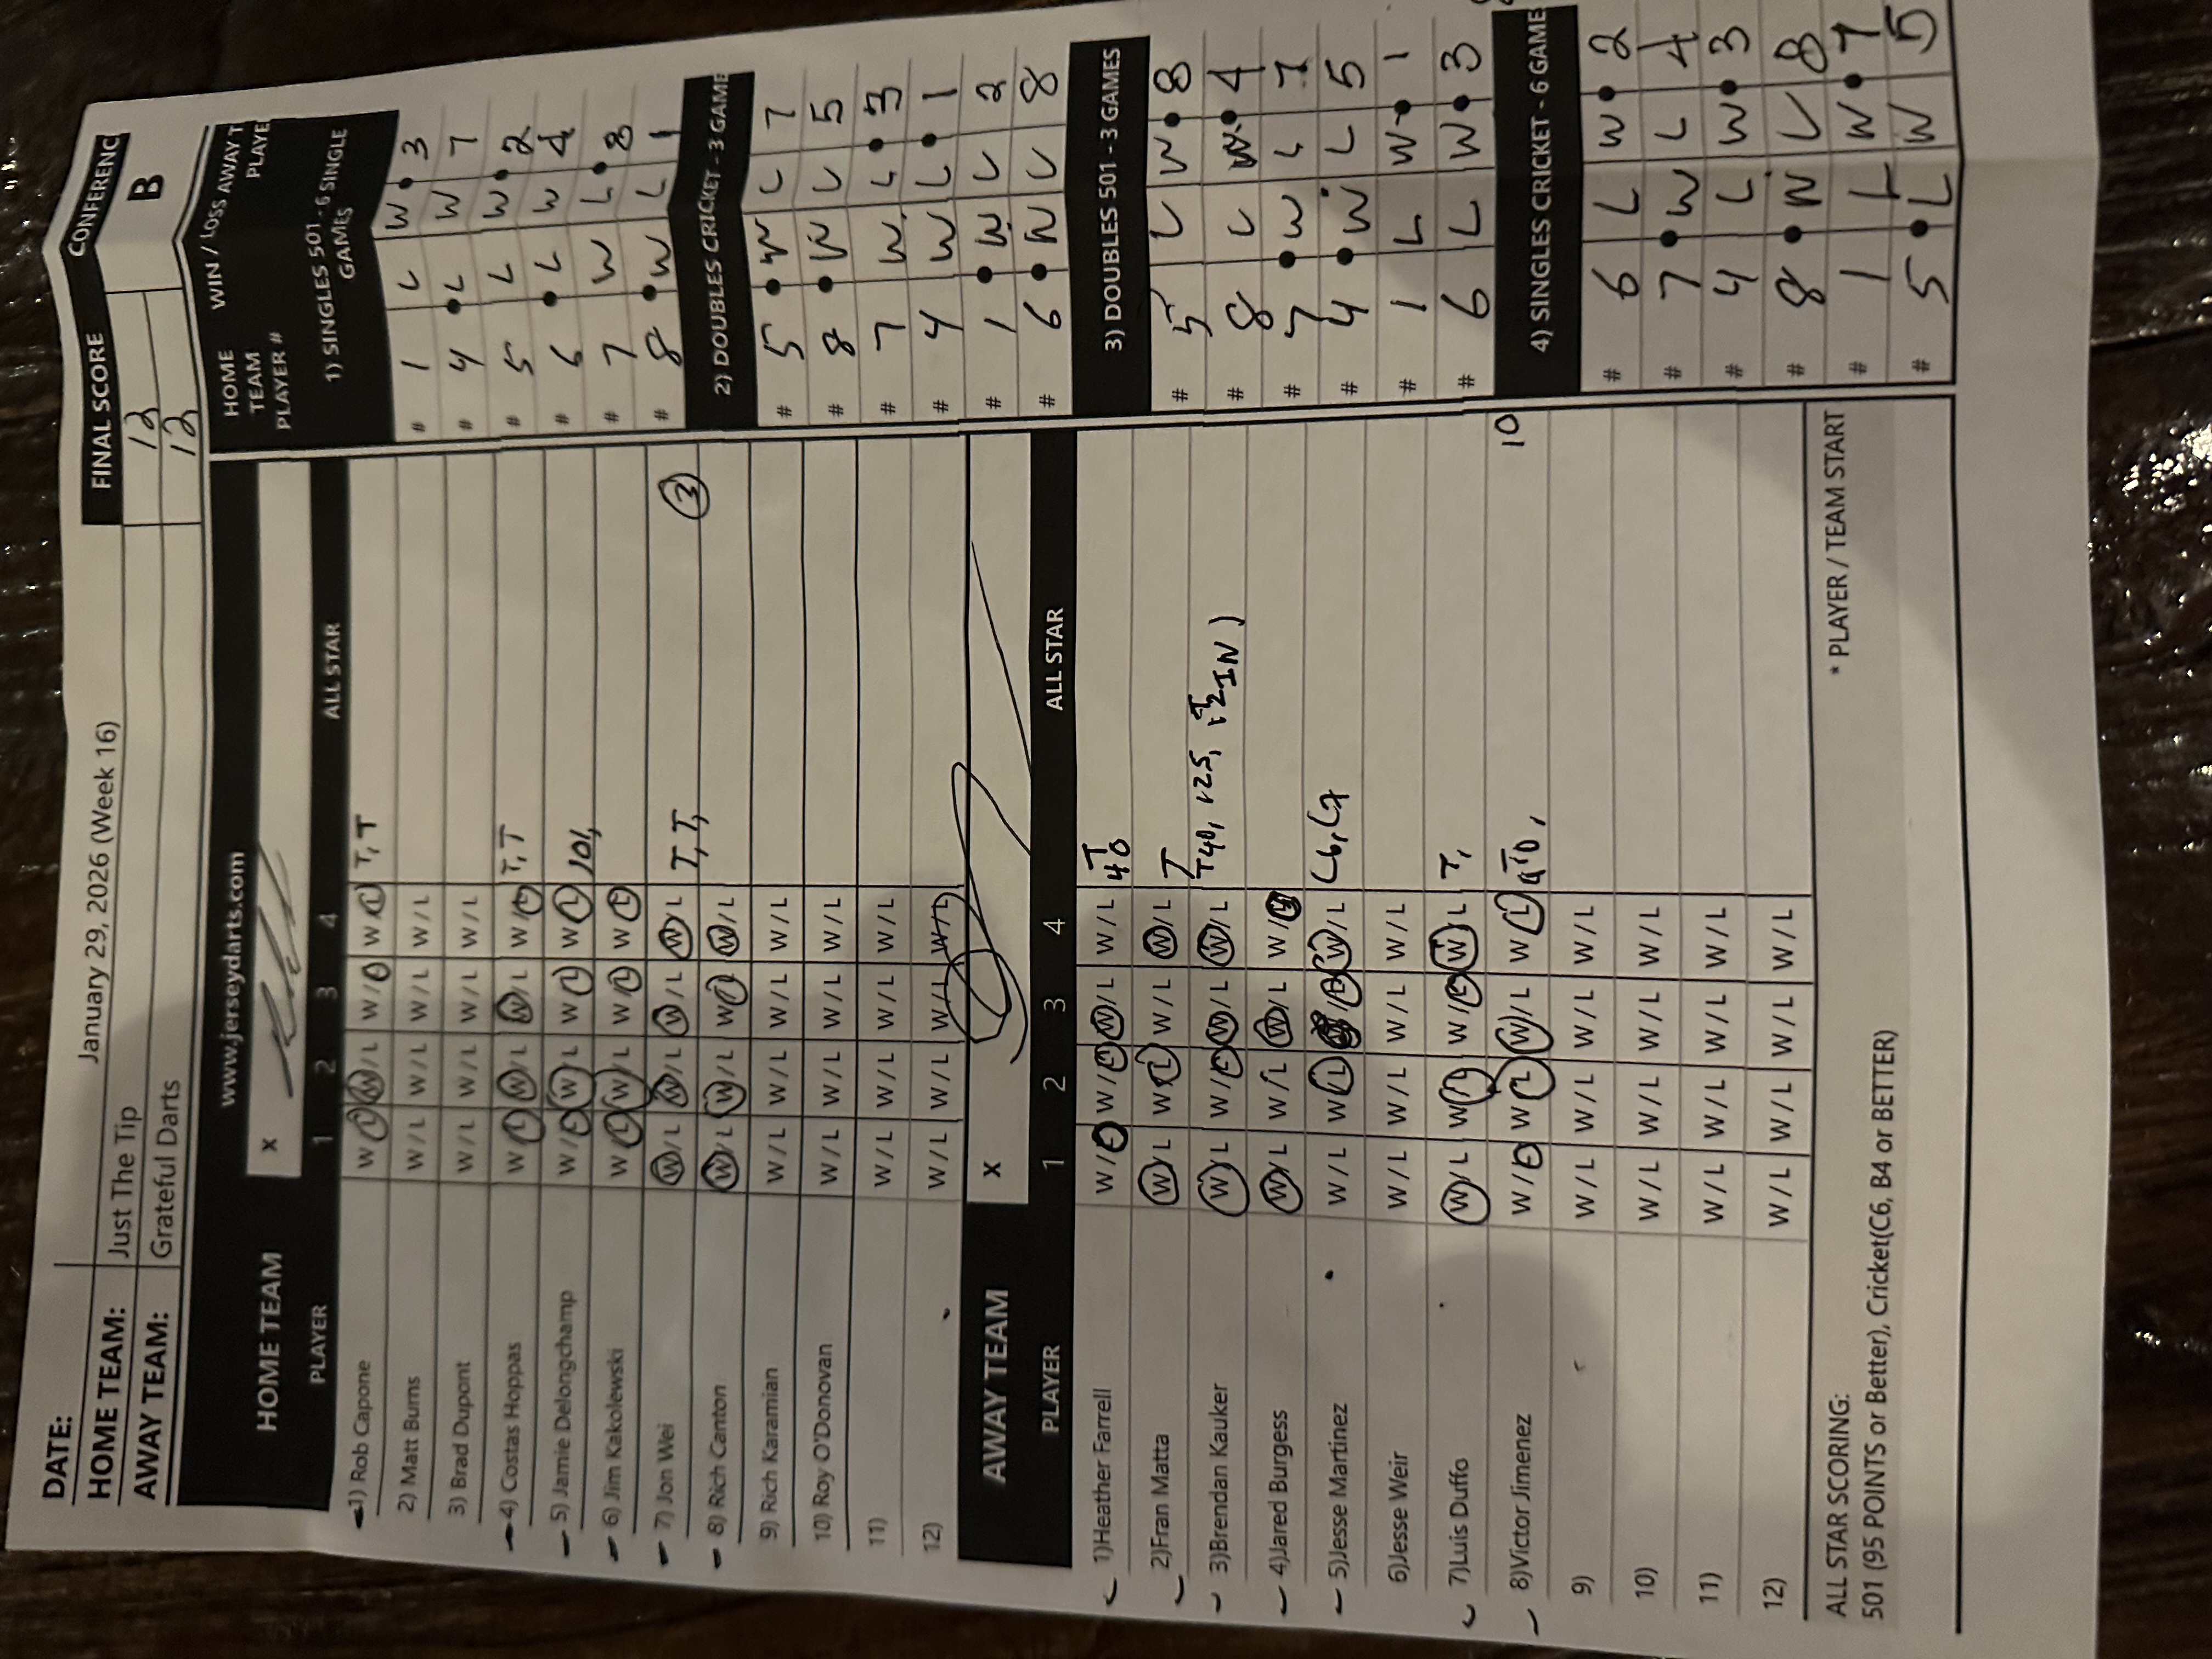 DATE: January 29, 2026 (Week 16) FINAL SCORE CONFERENC
HOME TEAM: Just The Tip 12 B
AWAY TEAM: Grateful Darts 12
www.jerseydarts.com
HOME TEAM X
PLAYER 1 2 3 4 ALL STAR
1) Rob Capone W L W / L W / W L T, T
2) Matt Burns W / L W / L W / L W / L
3) Brad Dupont W / L W / L W / L W / L
4) Costas Hoppas W L W / L W / L W / L T, T
5) Jamie Delongchamp W / L W / L W L W L 101,
6) Jim Kakolewski W L W / L W L W L
7) Jon Wei W / L W / L W / L W / L T, T, 3
8) Rich Canton W / L W / L W L W / L
9) Rich Karamian W / L W / L W / L W / L
10) Roy O'Donovan W / L W / L W / L W / L
11) W / L W / L W / L W / L
12) W / L W / L W / L W / L
AWAY TEAM X
PLAYER 1 2 3 4 ALL STAR
1)Heather Farrell W / W / L W / L W / L T 40
2)Fran Matta W / L W L W / L W / L T
3)Brendan Kauker W / L W / L W / L W / L T40, 125,
4)Jared Burgess W / L W / L W / L W /
5)Jesse Martinez W / L W L / L W / L C6, C7
6)Jesse Weir W / L W / L W / L W / L
7)Luis Duffo W / L W L W / L W / L T,
8)Victor Jimenez W / L W L W / L W L 10
9) W / L W / L W / L W / L
10) W / L W / L W / L W / L
11) W / L W / L W / L W / L
12) W / L W / L W / L W / L
ALL STAR SCORING:
501 (95 POINTS or Better), Cricket(C6, B4 or BETTER)
* PLAYER / TEAM START
HOME TEAM PLAYER # WIN / LOSS AWAY T PLAYE
1) SINGLES 501 - 6 SINGLE GAMES
# 1 L W 3
# 4 L W 7
# 5 L W 2
# 6 L W 4
# 7 W L 8
# 8 W L 1
2) DOUBLES CRICKET - 3 GAME
# 5 W L 7
# 8 W L 5
# 7 W L 3
# 4 W L 1
# 1 W L 2
# 6 W L 8
3) DOUBLES 501 - 3 GAMES
# 5 L W 8
# 8 L W 4
# 7 W L 7
# 4 W L 5
# 1 L W 1
# 6 L W 3
4) SINGLES CRICKET - 6 GAME
# 6 L W 2
# 7 W L 4
# 4 L W 3
# 8 W L 8
# 1 L W 7
# 5 L W 5